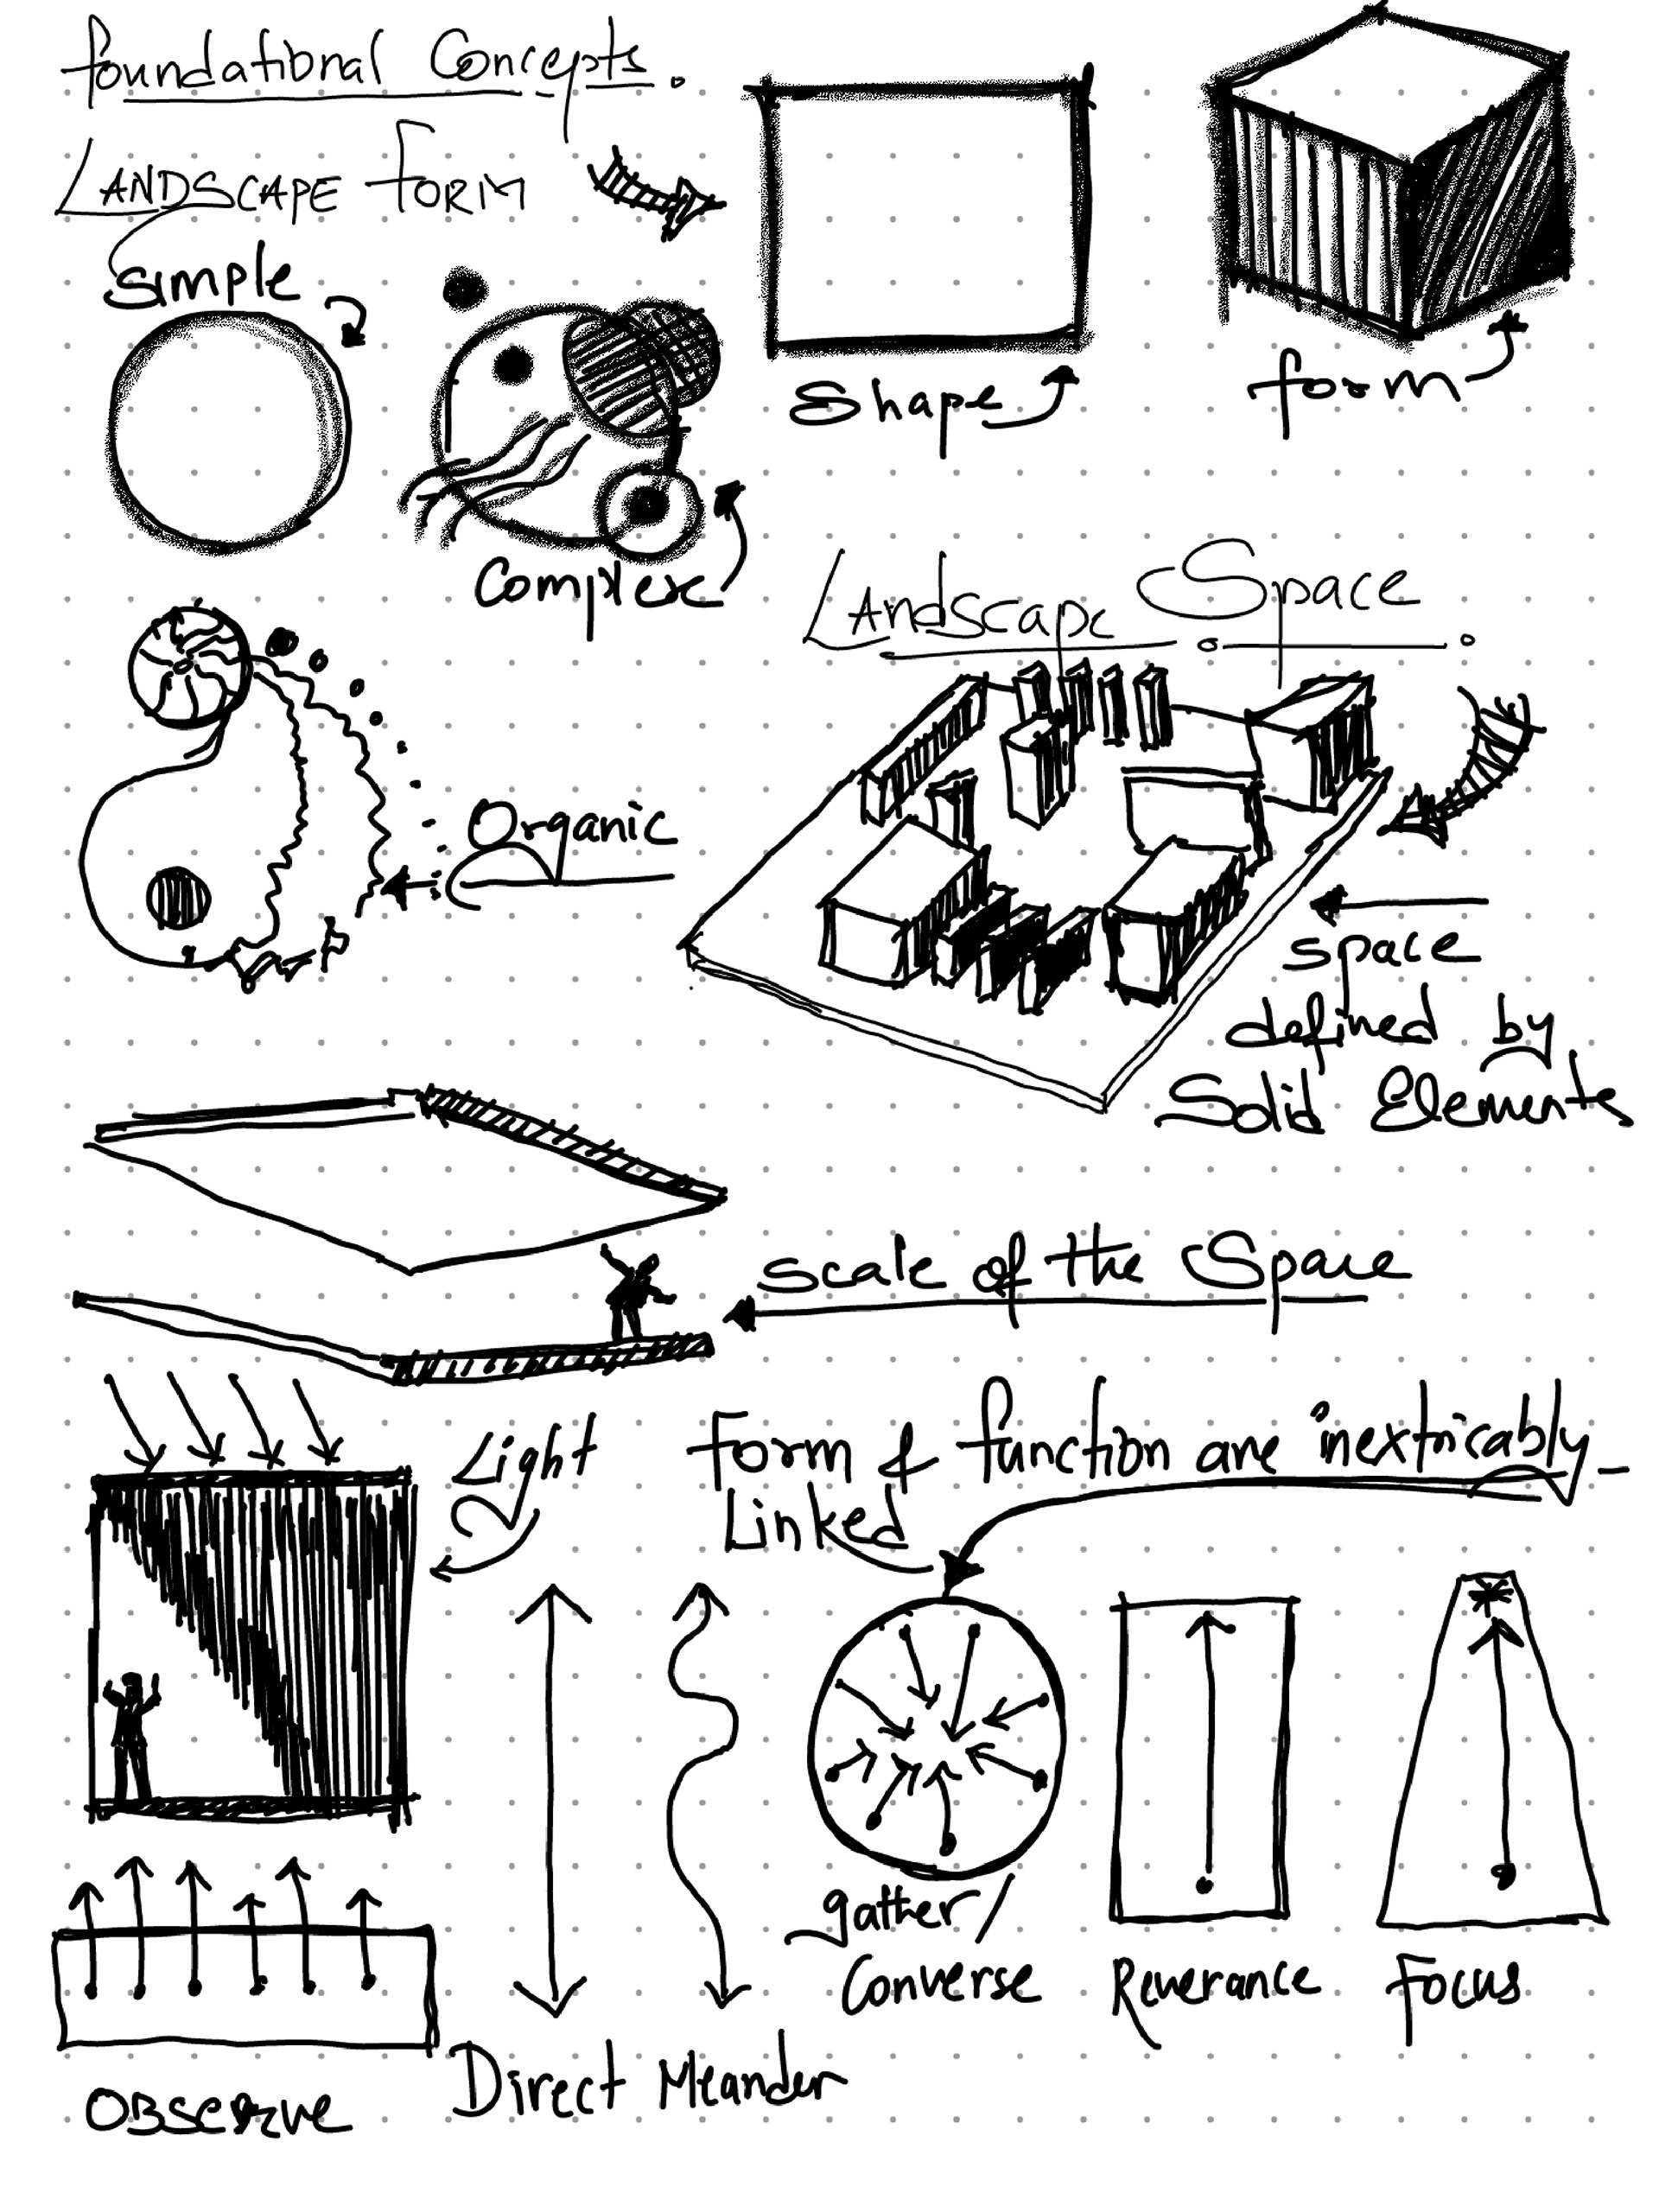 foundational Concepts.
LANDSCAPE FORM
Simple
Shape
form
Complex
Landscape Space
Organic
space
defined by
Solid Elements
Scale of the Space
Light
Form & function are inextricably
Linked
gather/
Converse
Reverance
Focus
Direct Meander
OBSERVE